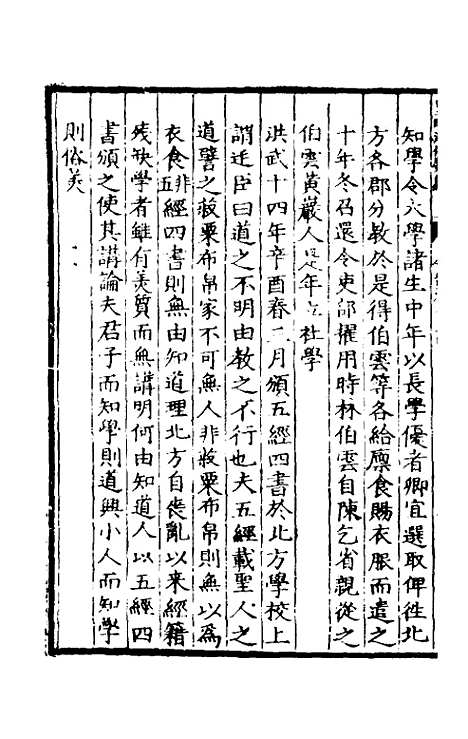 知學令太學諸生中年以長學優者卿宜選取俾徃北
方各郡分教於是得伯雲等各給廪食賜衣服而遣之
十年冬召還令吏部擢用時林伯雲自陳乞省親從之
伯雲黄巖人是年立社學
洪武十四年辛酉春三月頒五經四書於北方學校上
謂廷臣曰道之不明由教之不行也夫五經載聖人之
道譬之菽粟布帛家不可無人非菽粟布帛則無以為
衣食非五經四書則無由知道理北方自喪亂以来經籍
殘缺學者雖有美質而無講明何由知道人以五經四
書頒之使其講論夫君子而知學則道興小人而知學
則俗美